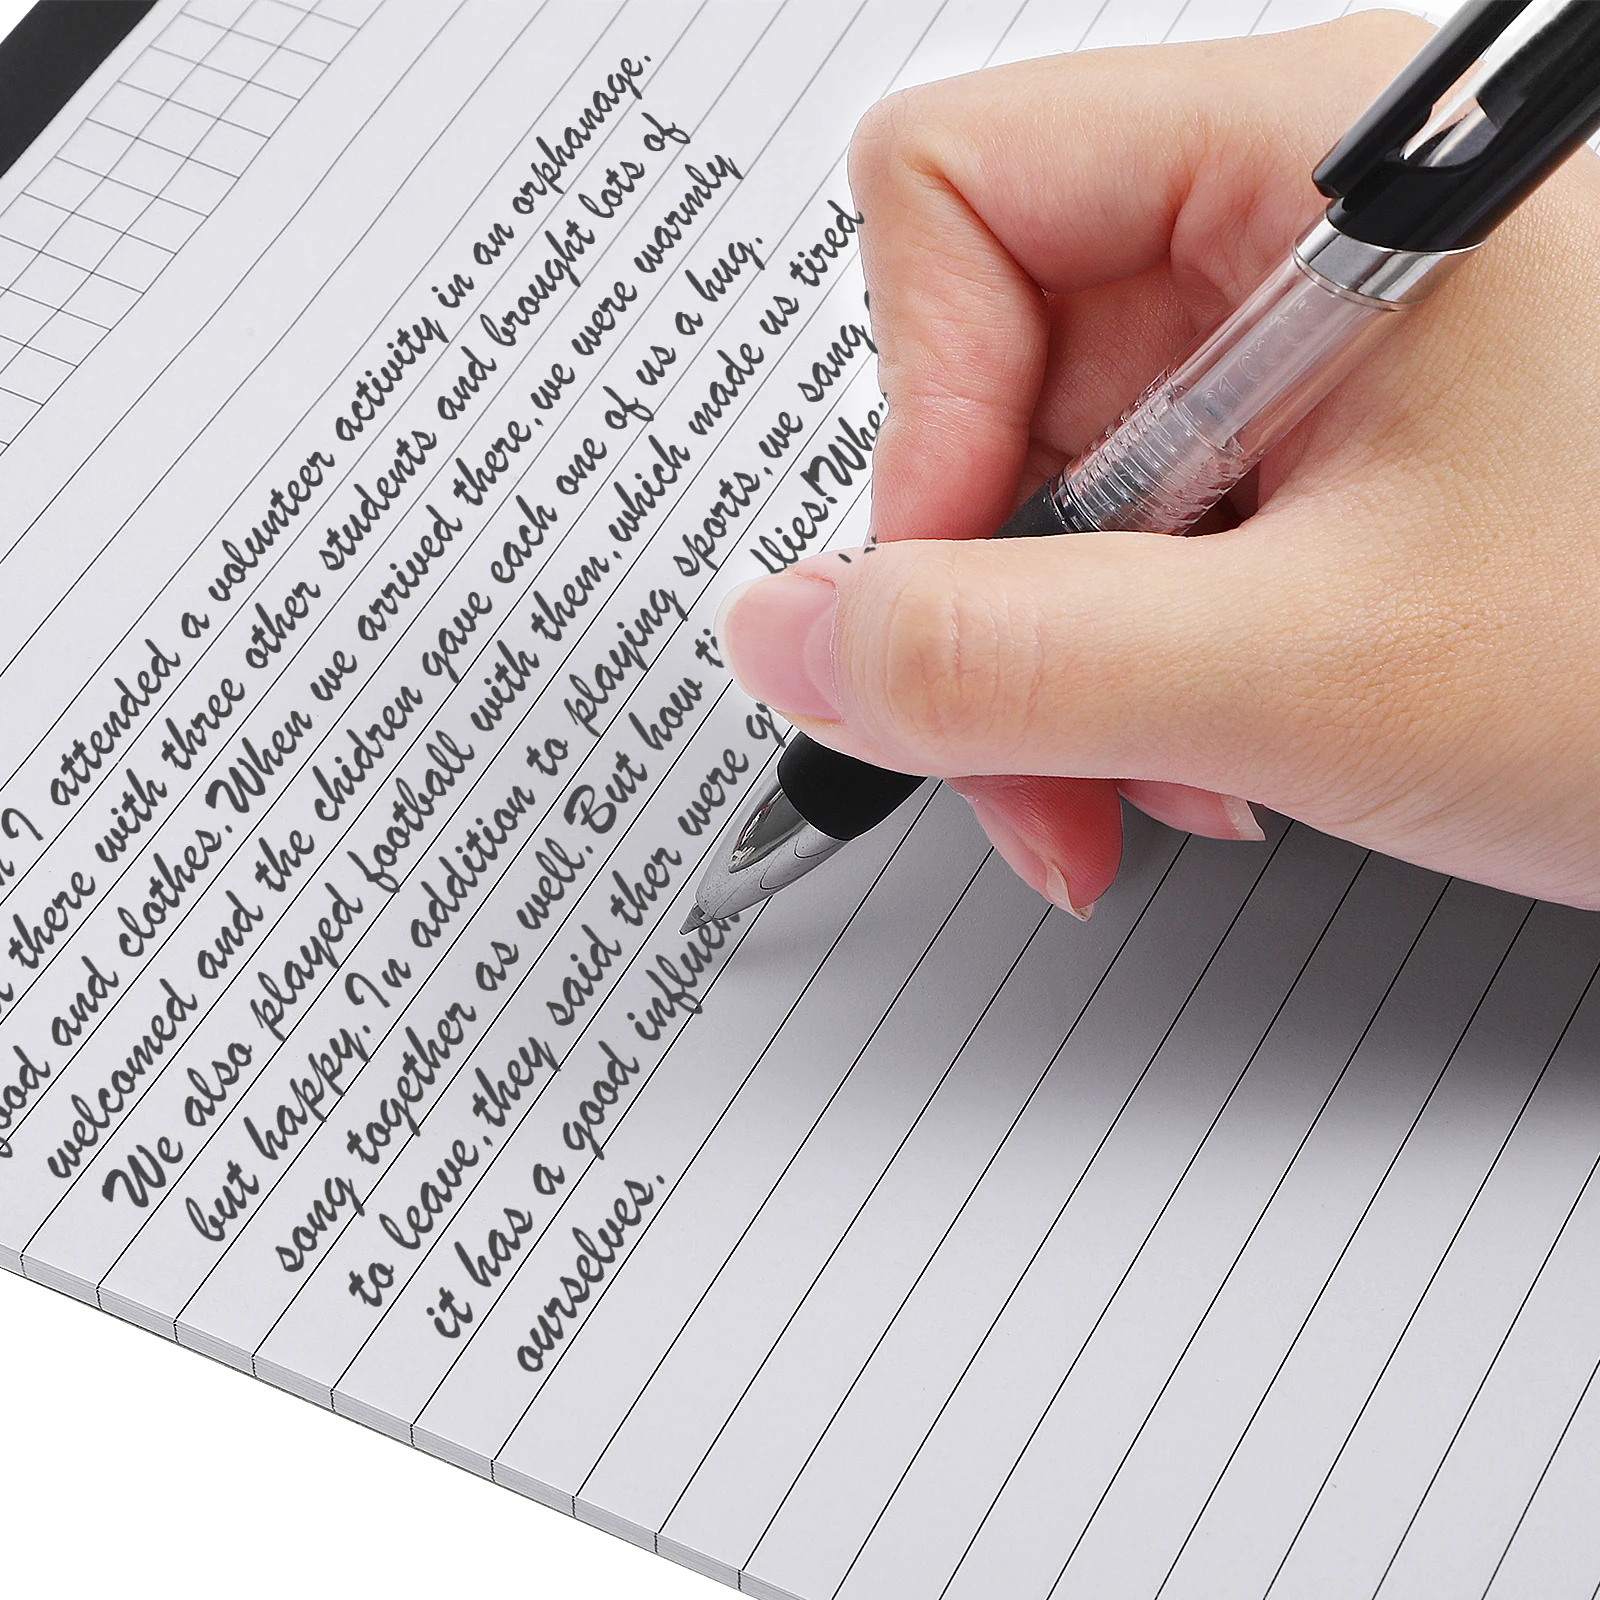 I attended a volunteer activity in an orphanage.
there with three other students and brought lots of
food and clothes. When we arrived there, we were warmly
welcomed and the chidren gave each one of us a hug.
We also played football with them, which made us tired
but happy. In addition to playing sports, we sang
song together as well. But how flies! When
to leave, they said ther were
it has a good influen
ourselves.